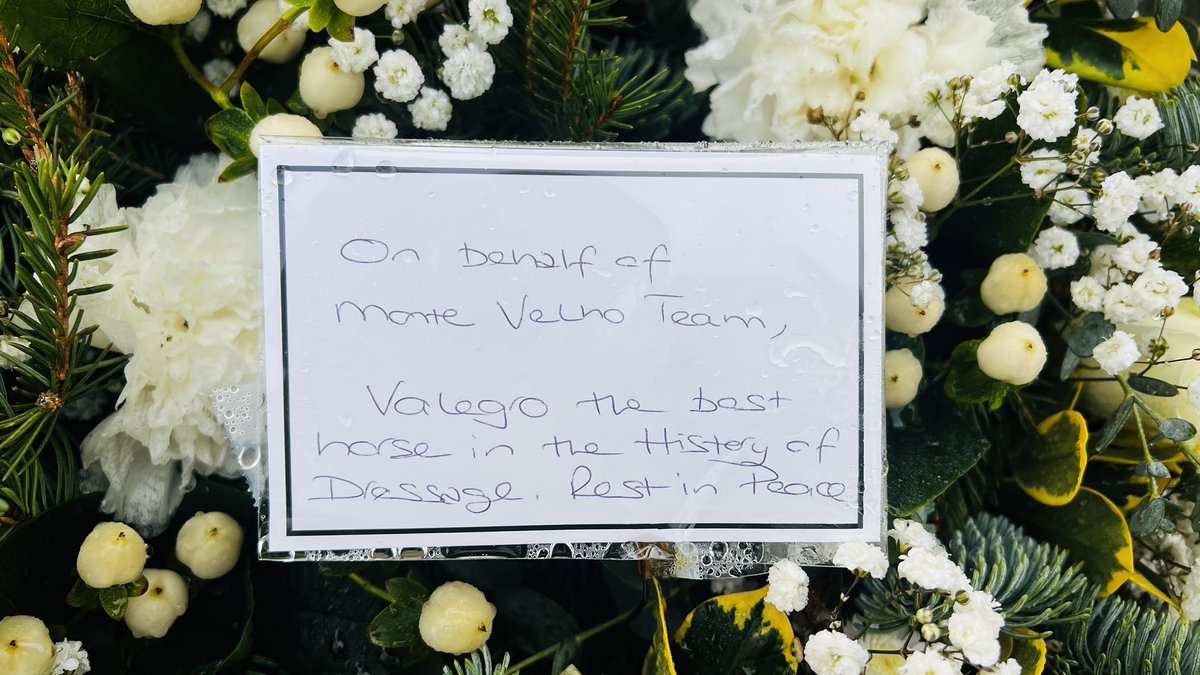 On behalf of
Monte Velho Team,
Valegro the best
horse in the History of
Dressage. Rest in Peace